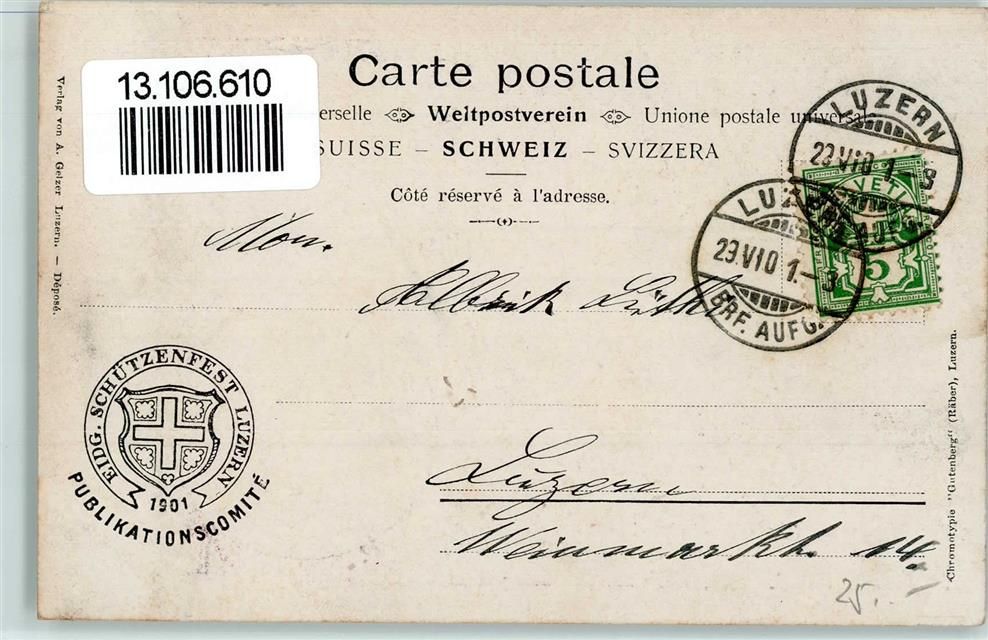 13.106.610
Carte postale
erselle Weltpostverein Unione postale universale
SUISSE – SCHWEIZ – SVIZZERA
Côté réservé à l'adresse.
Verlag von A. Gelzer Luzern. — Déposé.
LUZERN
23.VI01.–8
LUZERN
23.VI01.–3
BRF. AUFG.
5
Mon.
Albink Lüthi
EIDG. SCHÜTZENFEST LUZERN
1901
PUBLIKATIONSCOMITÉ
Luzern
Weinmarkt. 14.
25.–
Chromotypie "Gutenberg" (Räber), Luzern.